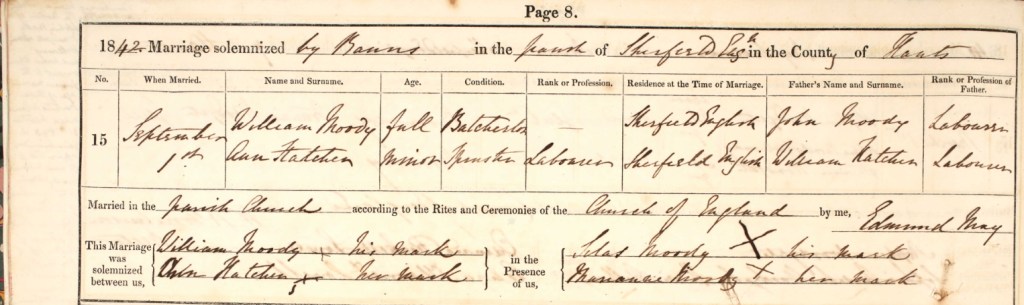 Page 8.
1842. Marriage solemnized by Banns in the parish of Sherfield Eng^h in the County of Hants
No. When Married. Name and Surname. Age. Condition. Rank or Profession. Residence at the Time of Marriage. Father's Name and Surname. Rank or Profession of Father.
15 September 1st William Moody full Batchelor — Sherfield English John Moody Labourer
Ann Hatcher minor Spinster Labourer Sherfield English William Hatcher Labourer
Married in the parish Church according to the Rites and Ceremonies of the Church of England by me, Edmund May
This Marriage was solemnized between us, William Moody x his mark
Ann Hatcher x her mark
in the Presence of us, Silas Moody X his mark
Moody x her mark